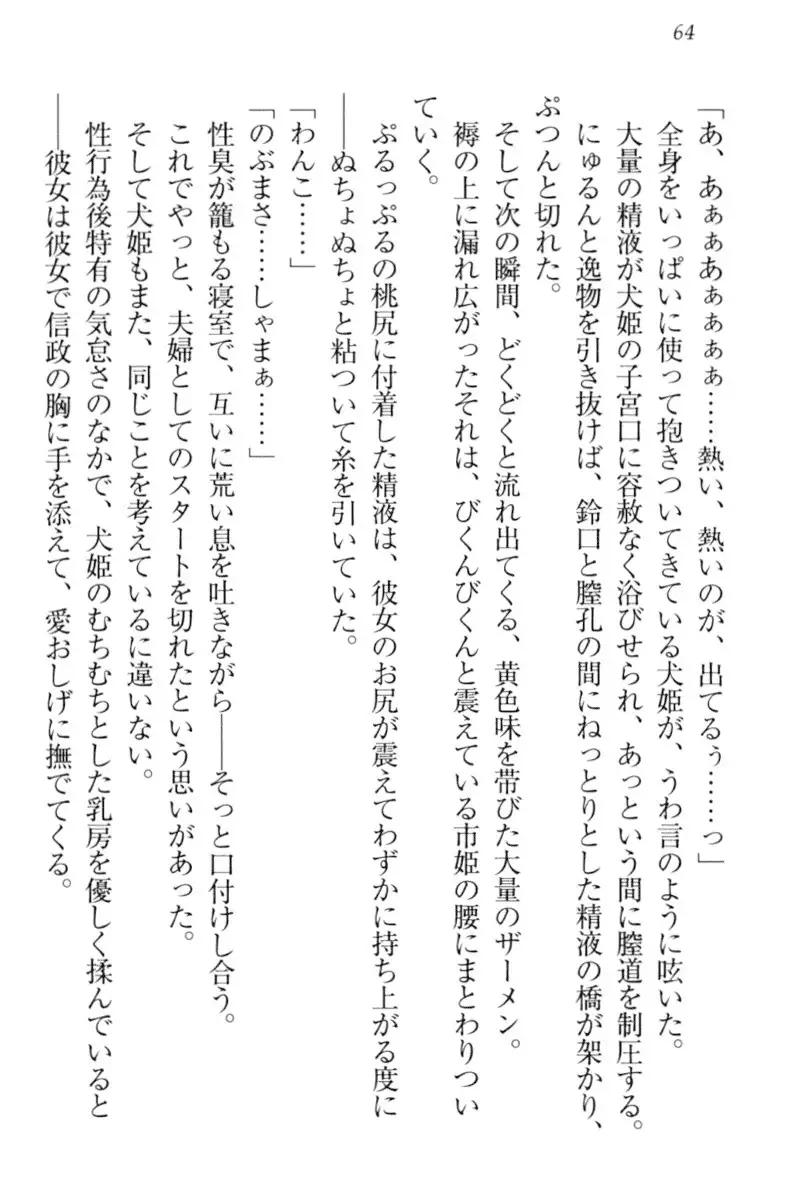 64
「あ、あぁぁあぁぁぁぁ……熱い、熱いのが、出てるぅ……っ」
全身をいっぱいに使って抱きついてきている犬姫が、うわ言のように呟いた。
大量の精液が犬姫の子宮口に容赦なく浴びせられ、あっという間に膣道を制圧する。
にゅるんと逸物を引き抜けば、鈴口と膣孔の間にねっとりとした精液の橋が架かり、
ぷつんと切れた。
そして次の瞬間、どくどくと流れ出てくる、黄色味を帯びた大量のザーメン。
褥の上に漏れ広がったそれは、びくんびくんと震えている市姫の腰にまとわりつい
ていく。
ぷるっぷるの桃尻に付着した精液は、彼女のお尻が震えてわずかに持ち上がる度に
――ぬちょぬちょと粘ついて糸を引いていた。
「わんこ……」
「のぶまさ……しゃまぁ……」
性臭が籠もる寝室で、互いに荒い息を吐きながら――そっと口付けし合う。
これでやっと、夫婦としてのスタートを切れたという思いがあった。
そして犬姫もまた、同じことを考えているに違いない。
性行為後特有の気怠さのなかで、犬姫のむちむちとした乳房を優しく揉んでいると
――彼女は彼女で信政の胸に手を添えて、愛おしげに撫でてくる。